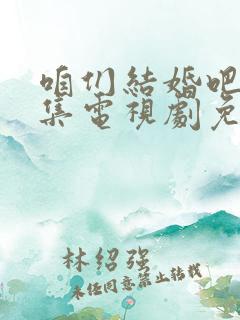 咱们結婚吧
集電視劇免
林绍强
未经同意禁止转载